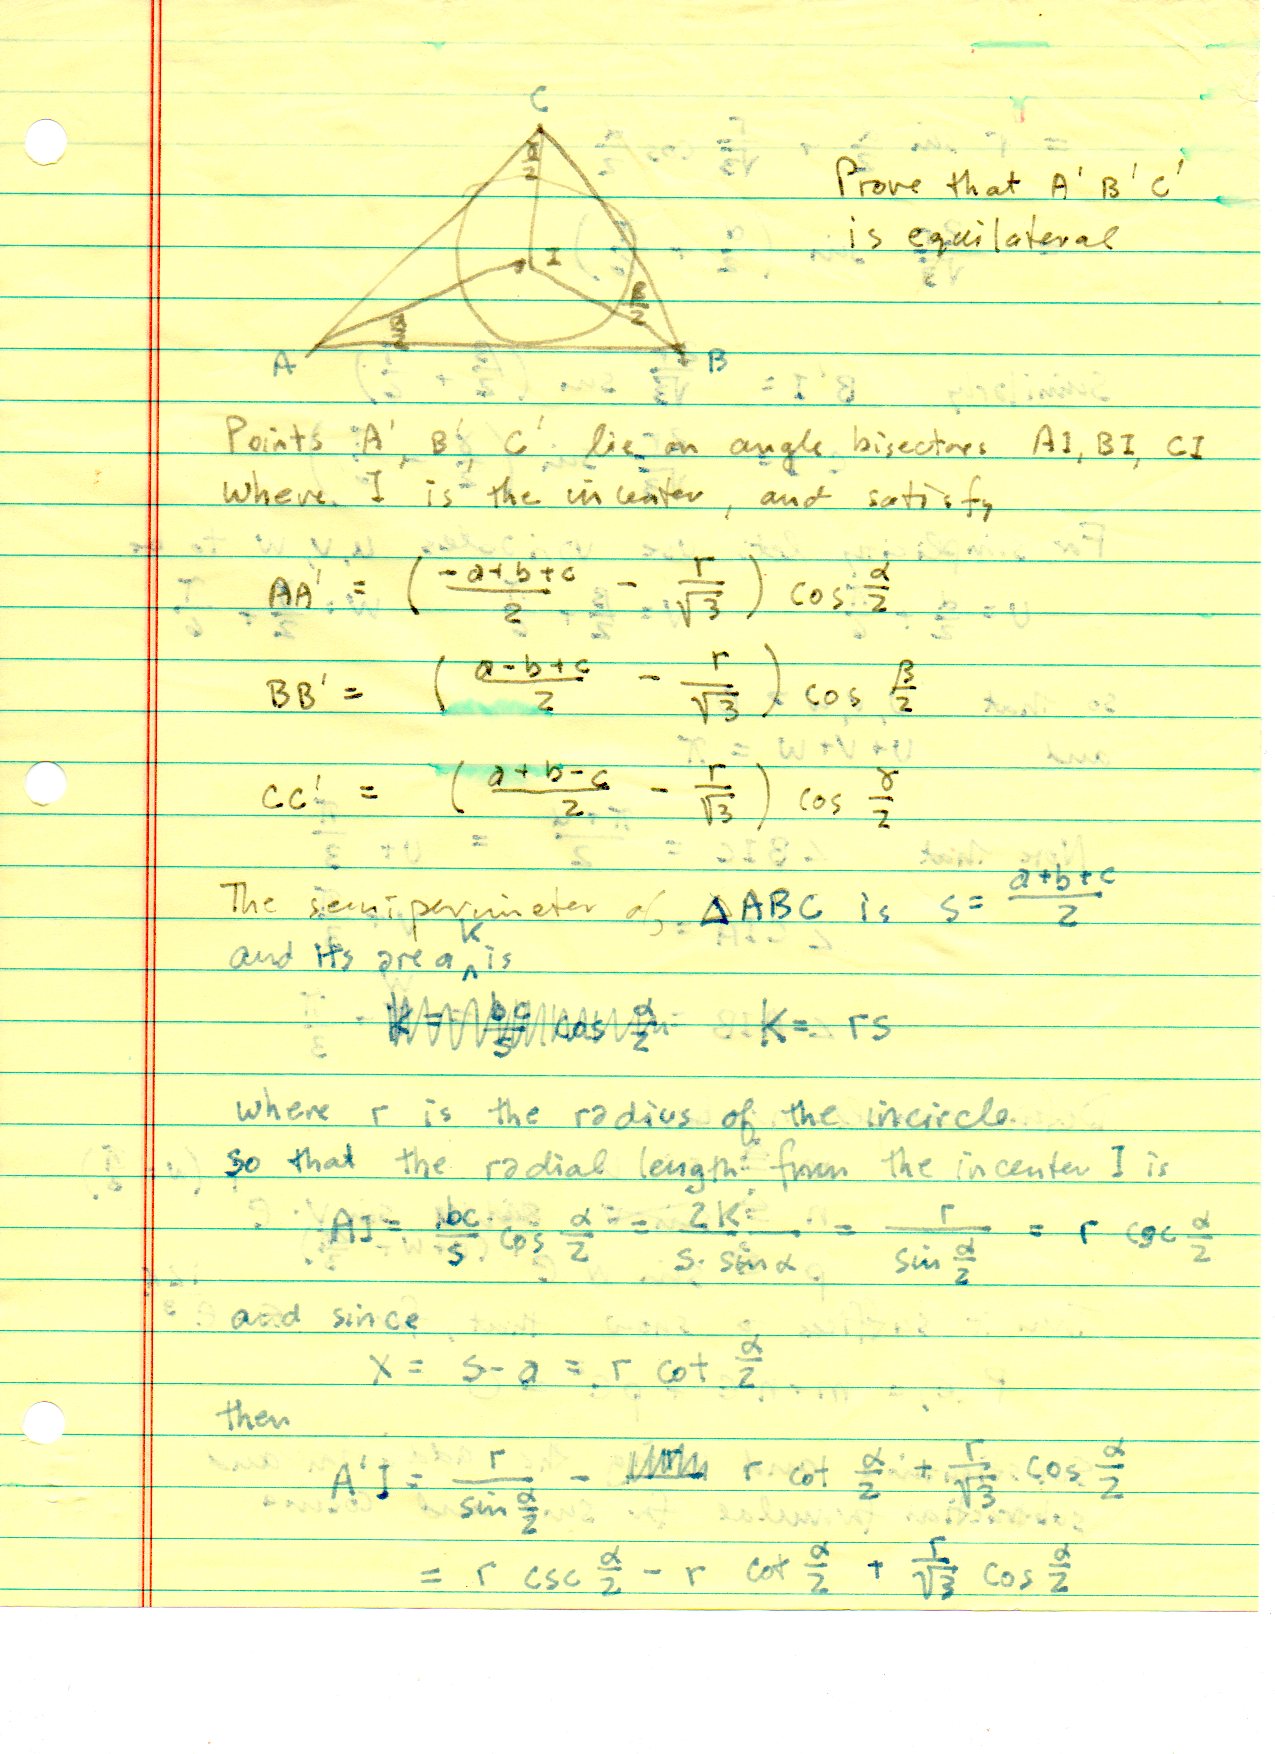 C
α/2
Prove that A' B' C'
is equilateral
I
β/2
α/2
A
B
Points A', B', C' lie on angle bisectors AI, BI, CI
where I is the incenter, and satisfy
AA' = ( (-a+b+c)/2 - r/√3 ) cos α/2
BB' = ( (a-b+c)/2 - r/√3 ) cos β/2
CC' = ( (a+b-c)/2 - r/√3 ) cos γ/2
The semiperimeter of ΔABC is s = (a+b+c)/2
and its area K is
K = rs
where r is the radius of the incircle
so that the radial length from the incenter I is
AI = bc/s cos α/2 = 2K/(s · sin α) = r/(sin α/2) = r csc α/2
and since
x = s-a = r cot α/2
then
A'I = r/(sin α/2) - r cot α/2 + r/√3 cos α/2
= r csc α/2 - r cot α/2 + r/√3 cos α/2